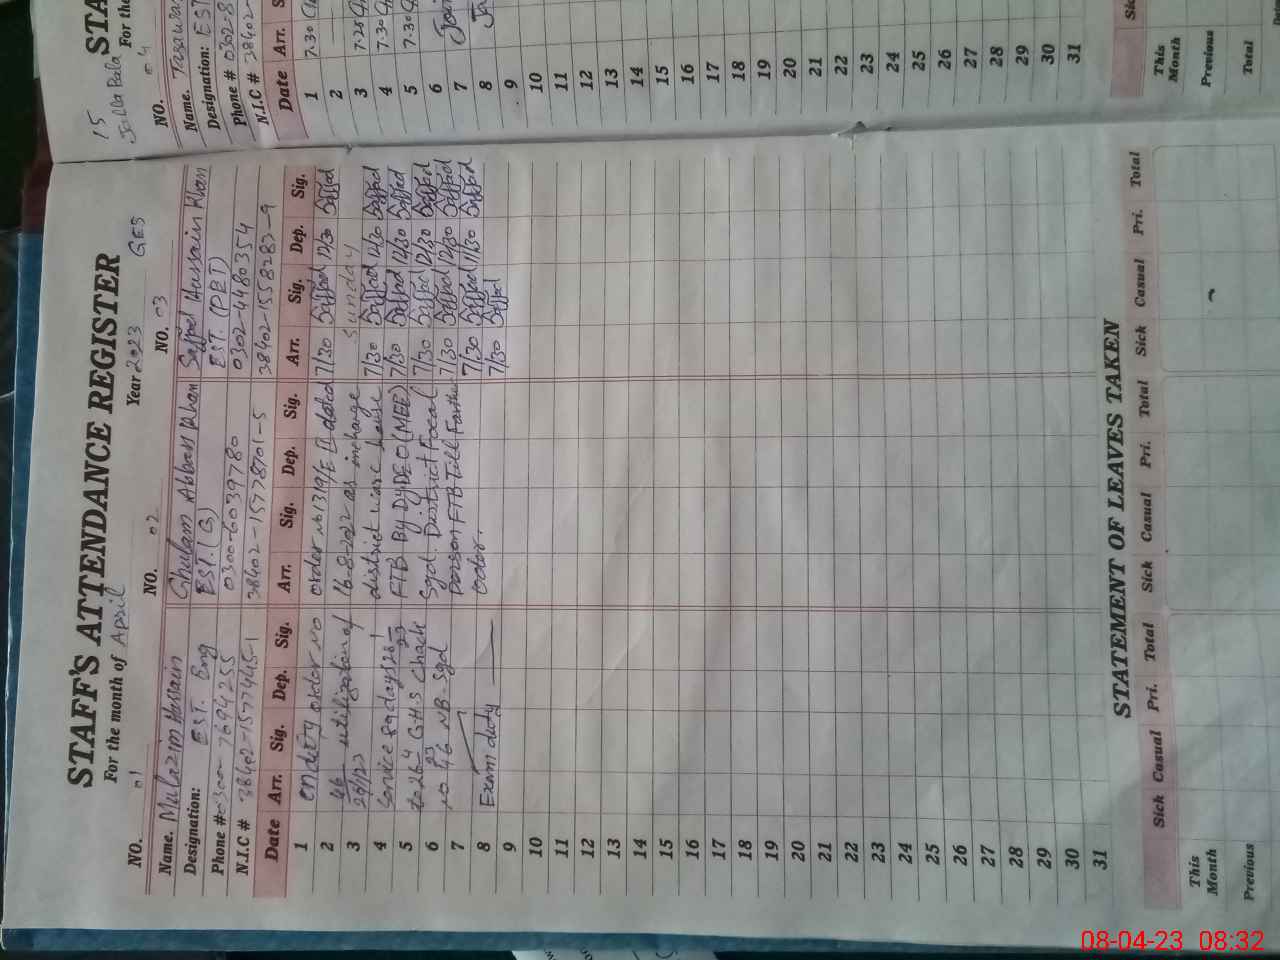 STAFF'S ATTENDANCE REGISTER
For the month of April Year 2023 GES
NO. 01 NO. 02 NO. 03
Name. Mulazim Hussain Ghulam Abbas Khan Saffed Hussain Khan
Designation: EST. Eng EST. (G) EST. (PET)
Phone # 0300-7694255 0300-6039780 0302-4480354
N.I.C # 38402-1577445-1 38402-15778701-5 38402-1558283-9
Date Arr. Sig. Dep. Sig. Arr. Sig. Dep. Sig. Arr. Sig. Dep. Sig.
1 on duty order no order no 1319/E II dated 7/30 Saffed 12/30 Saffed
2 46 utilization of 16-8-2022 as incharge Sunday
3 district ware house 7/30 Saffed 12/30 Saffed
4 Service FTB By DyDEO (MEE) 7/30 Saffed 12/30 Saffed
5 to 26-4-23 G.H.S Chack Sgd. District Focal 7/30 Saffed 12/30 Saffed
6 no 46 NB. Sgd Person FTB Till Farther 7/30 Saffed 12/30 Saffed
7 order. 7/30 Saffed 11/30 Saffed
8 Exam duty 7/30 Saffed
9
10
11
12
13
14
15
16
17
18
19
20
21
22
23
24
25
26
27
28
29
30
31
STATEMENT OF LEAVES TAKEN
Sick Casual Pri. Total Sick Casual Pri. Total Sick Casual Pri. Total
This Month
Previous
15
STA
For the
04
NO.
Name. Tasawar
Designation: EST
Phone # 0302-8
N.I.C # 38402-
Date Arr. S
1 7.30
2
3 7.25
4 7.30
5 7.30
6
7
8
9
10
11
12
13
14
15
16
17
18
19
20
21
22
23
24
25
26
27
28
29
30
31
Sic
This Month
Previous
Total
08-04-23 08:32